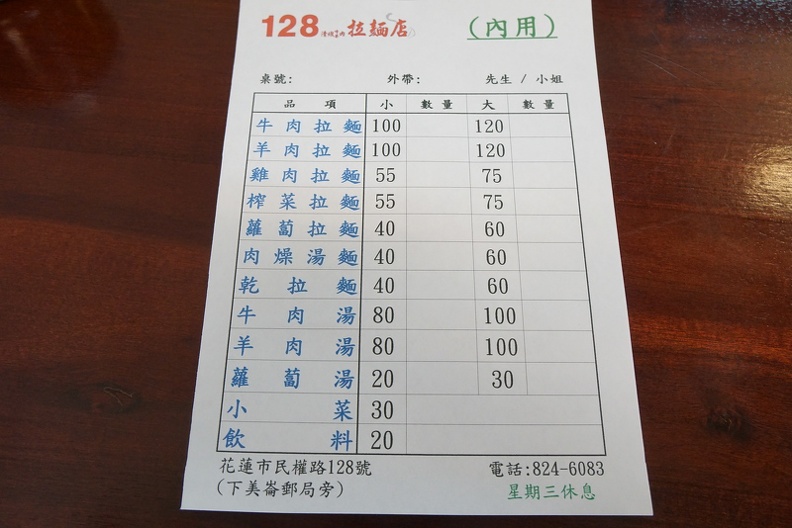 128 拉麵店 (內用)
桌號: 外帶: 先生 / 小姐
品項 小 數量 大 數量
牛肉拉麵 100 120
羊肉拉麵 100 120
雞肉拉麵 55 75
榨菜拉麵 55 75
蘿蔔拉麵 40 60
肉燥湯麵 40 60
乾拉麵 40 60
牛肉湯 80 100
羊肉湯 80 100
蘿蔔湯 20 30
小菜 30
飲料 20
花蓮市民權路128號 電話:824-6083
(下美崙郵局旁) 星期三休息